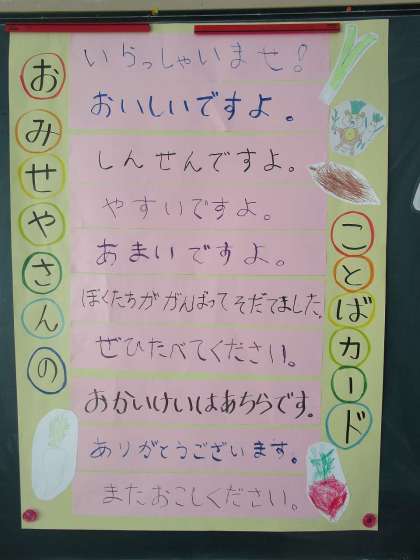 おみせやさんの
ことばカード
いらっしゃいませ!
おいしいですよ。
しんせんですよ。
やすいですよ。
あまいですよ。
ぼくたちが がんばって そだてました。
ぜひたべてください。
おかいけいはあちらです。
ありがとうございます。
またおこしください。